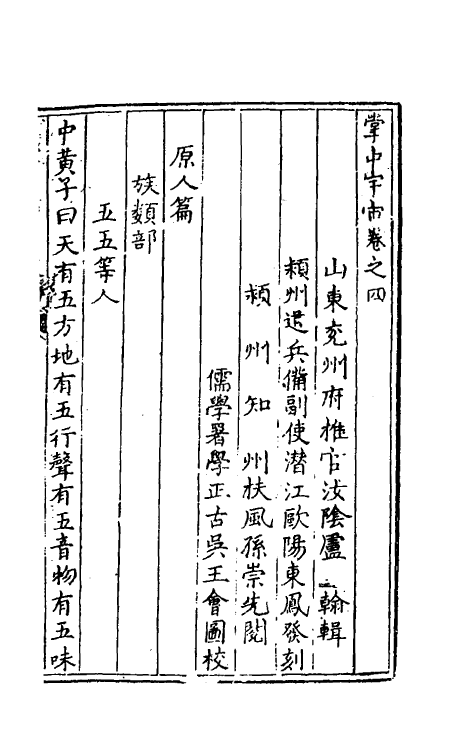 掌中宇宙卷之四
山東兖州府推官汝陰盧翰輯
頴州道兵備副使潜江歐陽東鳳發刻
頴州知州扶風孫崇先閲
儒學署學正古吳王會圖校
原人篇
族類部
五五等人
中黃子曰天有五方地有五行聲有五音物有五味